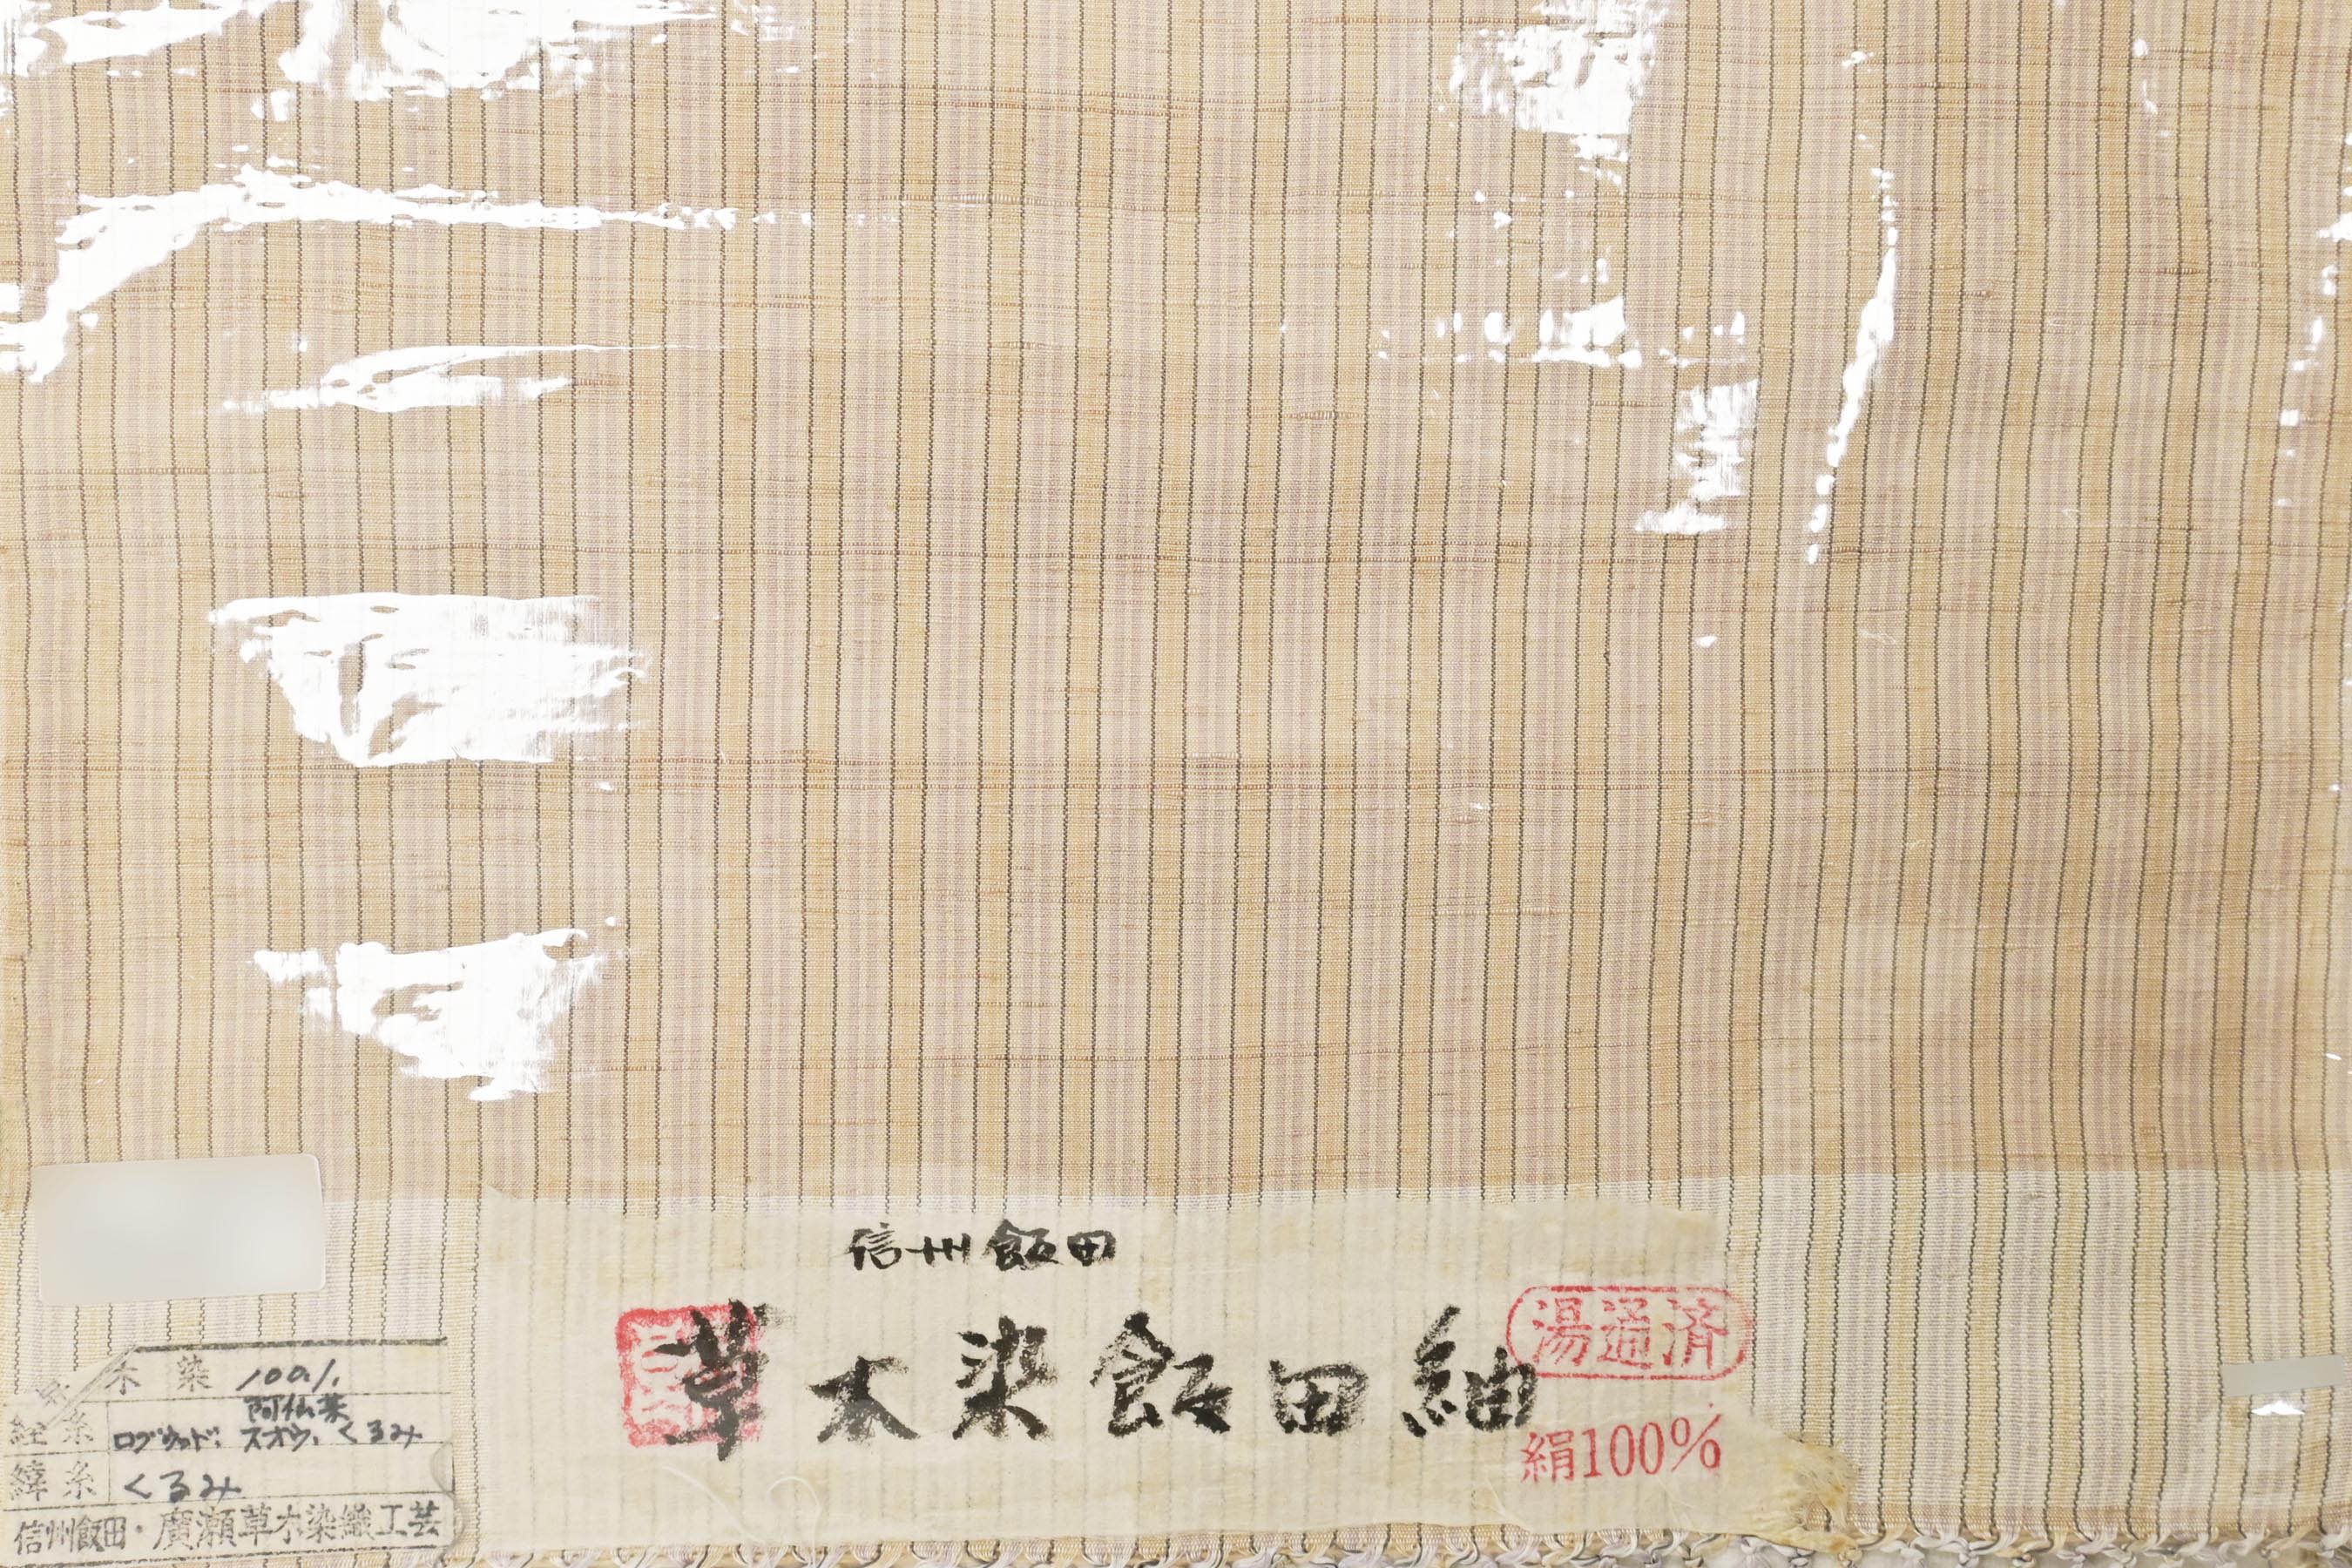 信州飯田
草木染飯田紬
湯通済
絹100%
木染 100%
阿仙薬
経糸 ログウッド、スオウ、くるみ
緯糸 くるみ
信州飯田・廣瀬草木染織工芸